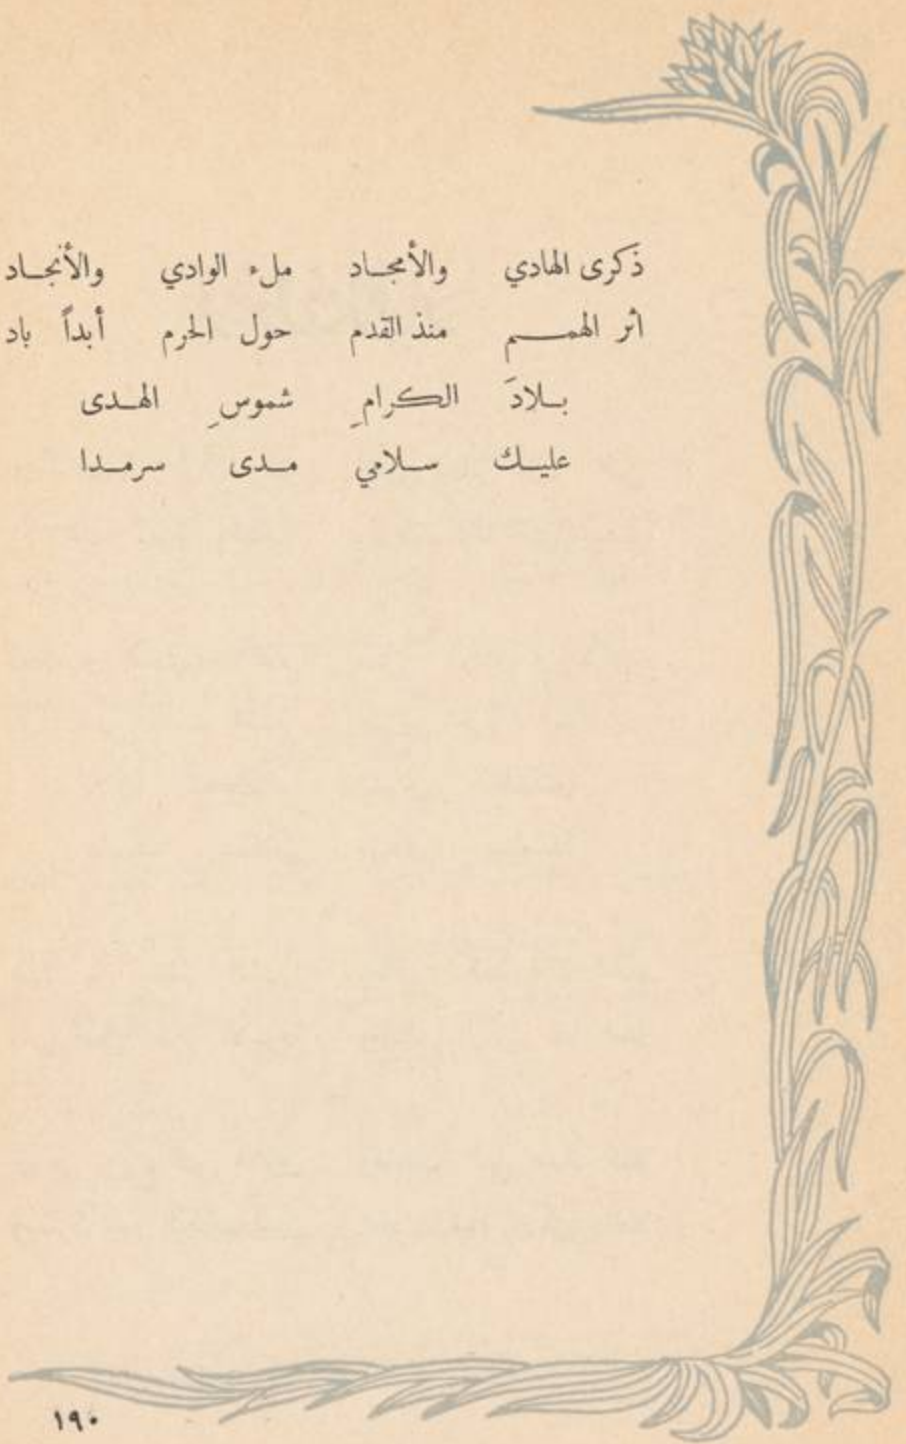 ذكرى الهادي والأمجـاد ملء الوادي والأنجـاد
أثر الهمـــم منذ القدم حول الحرم أبداً باد
بـلادَ الكرامِ شموسِ الهـدى
عليـك سـلامي مـدى سرمـدا
١٩٠